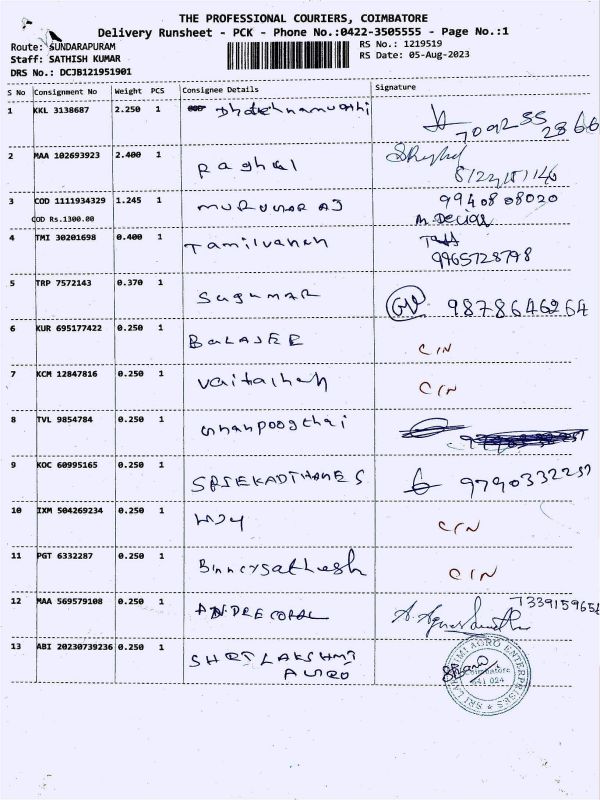 THE PROFESSIONAL COURIERS, COIMBATORE
Delivery Runsheet - PCK - Phone No.:0422-3505555 - Page No.:1
Route: SUNDARAPURAM
RS No.: 1219519
Staff: SATHISH KUMAR
RS Date: 05-Aug-2023
DRS No.: DCJB121951901
S No Consignment No Weight PCS Consignee Details Signature
1 KKL 3138687 2.250 1
7092552866
2 MAA 102693923 2.400 1 raghul
3 COD 1111934329 1.245 1 MURUGARAJ 9940808020
COD Rs.1300.00
4 TMI 30201698 0.400 1 Tamilvanan
9965728798
5 TRP 7572143 0.370 1 Sugumar 9878646264
6 KUR 695177422 0.250 1 BALAJEE C/N
7 KCM 12847816 0.250 1 C/N
8 TVL 9854784 0.250 1
9 KOC 60995165 0.250 1 9790332257
10 IXM 504269234 0.250 1 C/N
11 PGT 6332287 0.250 1 Binneysathesh C/N
12 MAA 569579108 0.250 1 7339159656
13 ABI 20230739236 0.250 1 SHRI LAKSHMI
AGRO
SRI LAKSHMI AGRO ENTERPRISES
Coimbatore
641 024